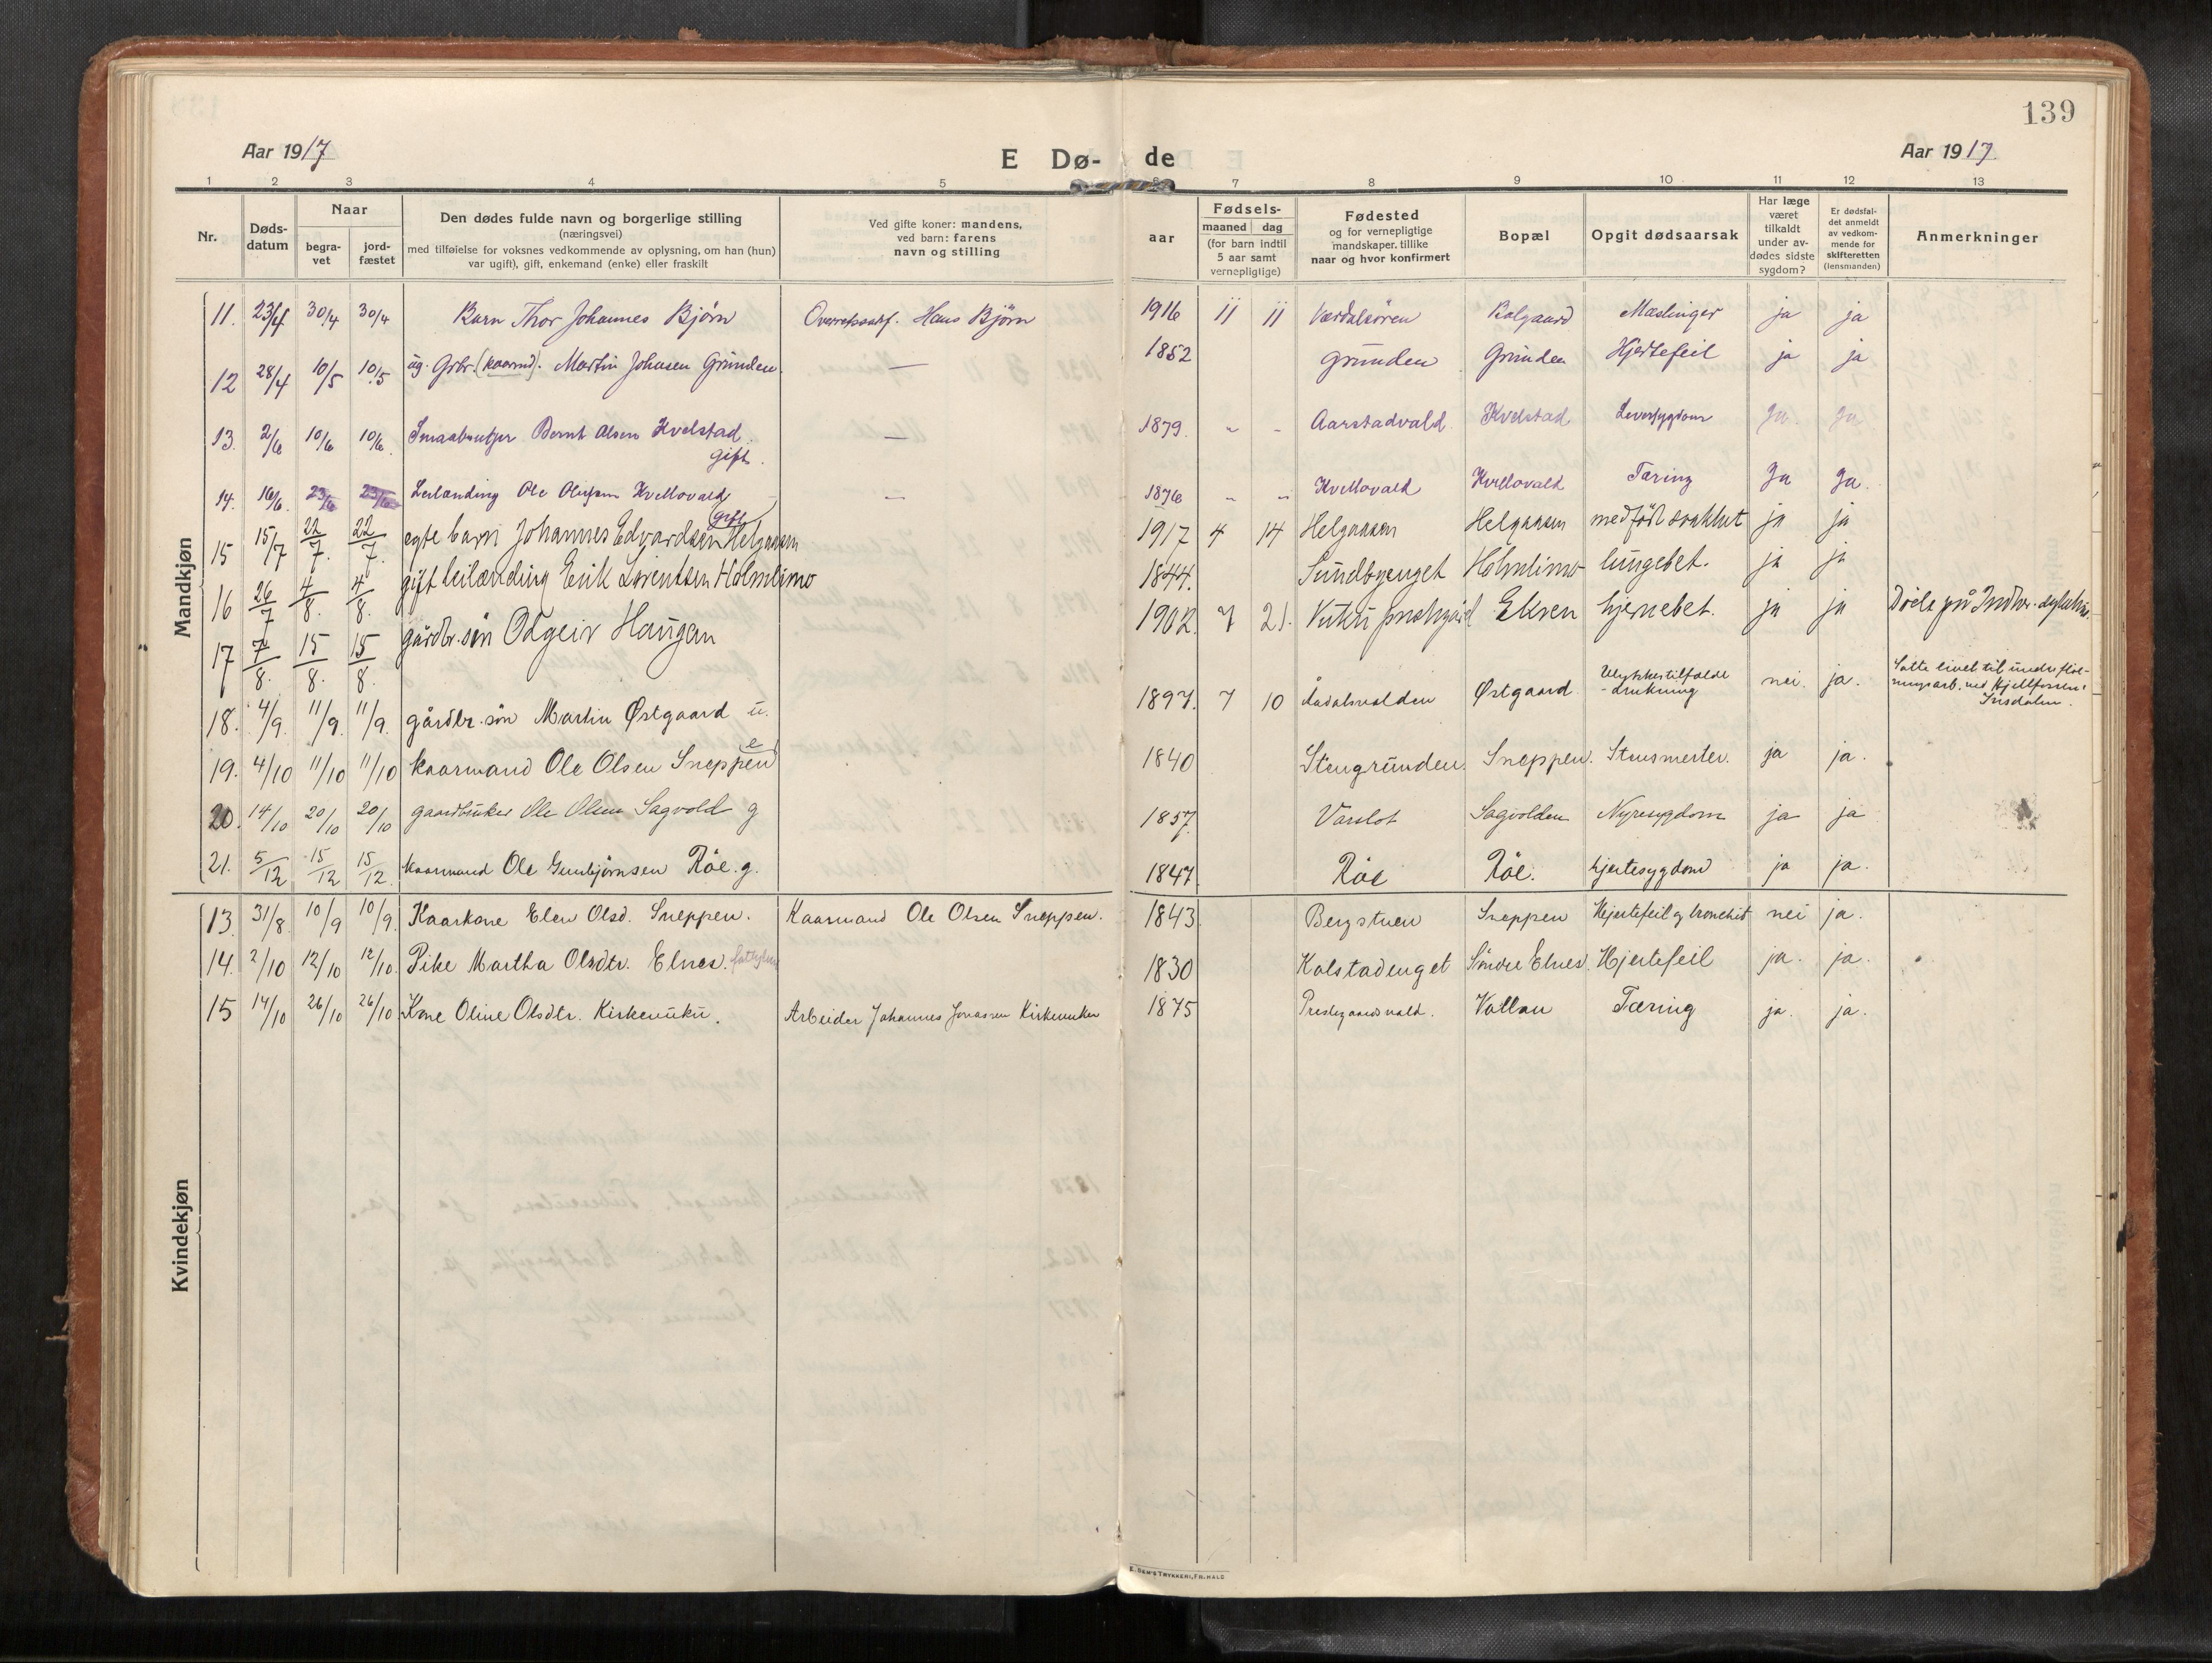 139
Aar 1917
E Dø- de
Aar 1917.
1 2 3 4 5 6 7 8 9 10 11 12 13
Nr.
Døds-
datum
Naar
begra-
vet
jord-
fæstet
Den dødes fulde navn og borgerlige stilling
(næringsvei)
med tilføielse for voksnes vedkommende av oplysning, om han (hun)
var ugift), gift, enkemand (enke) eller fraskilt
Ved gifte koner: mandens,
ved barn: farens
navn og stilling
aar
Fødsels-
maaned dag
(for barn indtil
5 aar samt
vernepligtige)
Fødested
og for vernepligtige
mandskaper, tillike
naar og hvor konfirmert
Bopæl
Opgit dødsaarsak
Har læge
været
tilkaldt
under av-
dødes sidste
sygdom?
Er dødsfal-
det anmeldt
av vedkom-
mende for
skifteretten
(lensmanden)
Anmerkninger
Mandkjøn
11. 23/4 30/4 30/4 Barn Thor Johannes Bjørn Overretssakf. Hans Björn 1916 11 11 Værdalsören Bolgaard Mæslinger ja ja
12 28/4 10/5 10/5 ug. Grbr. (kaarmd). Martin Johnsen Grunden. — 1852 Grunden Grunden Hjertefeil ja ja
13. 2/6 10/6 10/6 Smaabruger Bernt Olsen Kvelstad gift. — 1879. " - Aarstadvald Kvelstad Leversygdom Ja. Ja
14. 16/6. 23/6 23/6 Leilænding Ole Olufsen Kvellovald gift — 1876 " " Kvellovald Kvellovald Tæring Ja Ja.
15 15/7 22/7. 22/7. egte barn Johannes Edvardsen Helgaasen 1917 4 14 Helgaasen Helgaasen medfødt svakhet ja ja
16 26/7 4/8. 4/8. gift leilænding Erik Lorentsen Holmlimo 1844. Sundbyenget Holmlimo lungebet. ja ja
17 7/8. 15/8. 15/8. gårdbr. søn Odgeir Haugan 1902. 7 21. Vuku prestegård Ekren hjernebet. ja ja Døde på Indhr. sykehus.
18. 4/9. 11/9. 11/9. gårdbr. søn Martin Østgaard u. 1897. 7 10 Aadalsvolden Østgaard Ulykkestilfælde
-drukning nei. ja. Satte livet til under fløt-
ningsarb. ved Kjellfossen i
Insdalen.
19. 4/10 11/10 11/10 kaarmand Ole Olsen Sneppen e 1840 Stengrunden. Sneppen. ja ja.
20. 14/10 20/10 20/10 gaardbruker Ole Olsen Sagvold g 1857. Varslot Sagvolden Nyresygdom ja ja
21. 5/12 15/12 15/12. kaarmand Ole Gunbjørnsen Röe. g. 1847. Röe Röe. hjertesygdom ja ja.
Kvindekjøn
13. 31/8. 10/9 10/9. Kaarkone Elen Olsd. Sneppen. Kaarmand Ole Olsen Sneppen. 1843. Bergstuen Sneppen Hjertefeil og bronchit nei ja.
14. 2/10 12/10 12/10. Pike Martha Olsdtr. Elnes. 1830 Kolstadenget Söndre Elnes. Hjertefeil ja. ja.
15 14/10 26/10 26/10 Kone Oline Olsdtr. Kirkevuku. Arbeider Johannes Jonassen Kirkevuku 1875 Prestegaardsvald. Vollan Tæring ja. ja.
E. SEM'S TRYKKERI, FR.HALD